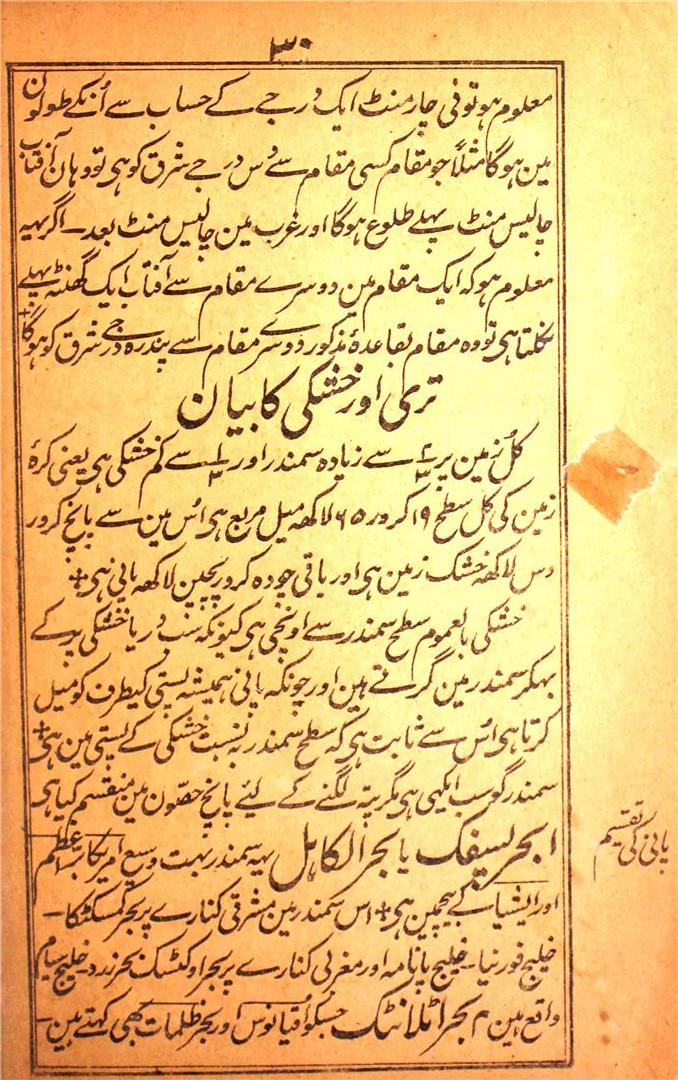 ۳۰
معلوم ہو تو فی چار منٹ ایک درجے کے حساب سے اُنکے طولون
مین ہوگا مثلاً جو مقام کسی مقام سے دس درجے شرق کو ہی تو وہان آفتاب
چالیس منٹ پہلے طلوع ہوگا اور غرب مین چالیس منٹ بعد ـ اگر یہہ
معلوم ہو کہ ایک مقام مین دوسرے مقام سے آفتاب ایک گھنٹہ پہلے
نکلتا ہی تو وہ مقام بقاعدۂ مذکور دوسرے مقام سے پندرہ درجے شرق کو ہوگا +
تری اور خشکی کا بیان
کل زمین پر ۲/۳ سے زیادہ سمندر اور ۱/۳ سے کم خشکی ہی یعنی کرۂ
زمین کی کل سطح ۱۹ کرور ۶۵ لاکھہ میل مربع ہی اُس مین سے پانچ کرور
دس لاکھہ خشک زمین ہی اور باقی چودہ کرور پچپن لاکھہ پانی ہی +
خشکی بالعموم سطح سمندر سے اونچی ہی کیونکہ سب دریا خشکی پر کے
بہکر سمندر مین گرتے ہین اور چونکہ پانی ہمیشہ پستی کیطرف کو میل
کرتا ہی اُس سے ثابت ہی کہ سطح سمندر بہ نسبت خشکی کے پستی مین ہی +
سمندر گو سب ایکہی ہی مگر پتہ لگنے کے لیئے پانچ حصّون مین منقسم کیا ہی
پانی کی تقسیم
۱ بحر پسیفک یا بحر الکاہل یہہ سمندر بہت وسیع امریکا بر اعظم
اور ایشیا کے بیچمین ہی + اس سمندر مین مشرقی کنارے پر بحر کمسکٹکا ـ
خلیج فورنیا ـ خلیج پانامہ اور مغربی کنارے پر بحر اوکٹسک بحر زرد ـ خلیج سیام
واقع ہین ۲ بحر اٹلانٹک جسکو اُقیانوس اور بحر ظلمات بھی کہتے ہین ـ